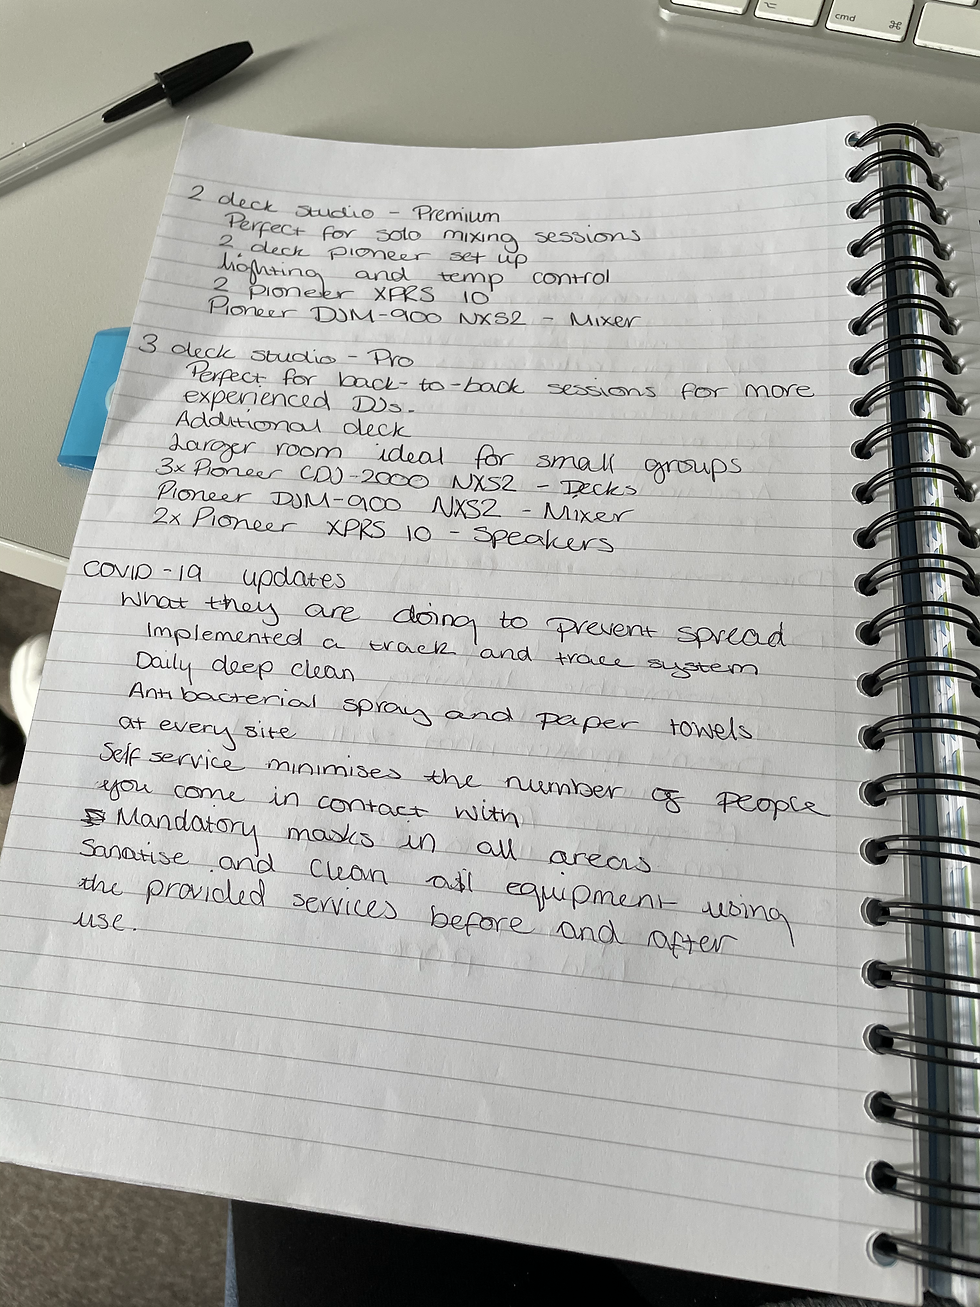 cmd ⌘
2 deck studio - Premium
Perfect for solo mixing sessions
2 deck pioneer set up
lighting and temp control
2 pioneer XPRS 10
Pioneer DJM-900 NXS2 - Mixer
3 deck studio - Pro
Perfect for back-to-back sessions for more
experienced DJs.
Additional deck
Larger room ideal for small groups
3x Pioneer CDJ-2000 NXS2 - Decks
Pioneer DJM-900 NXS2 - Mixer
2x Pioneer XPRS 10 - Speakers
COVID-19 updates
What they are doing to prevent spread
Implemented a track and trace system
Daily deep clean
Antibacterial spray and paper towels
at every site
Self service minimises the number of people
you come in contact with
Mandatory masks in all areas
Sanatise and clean all equipment using
the provided services before and after
use.